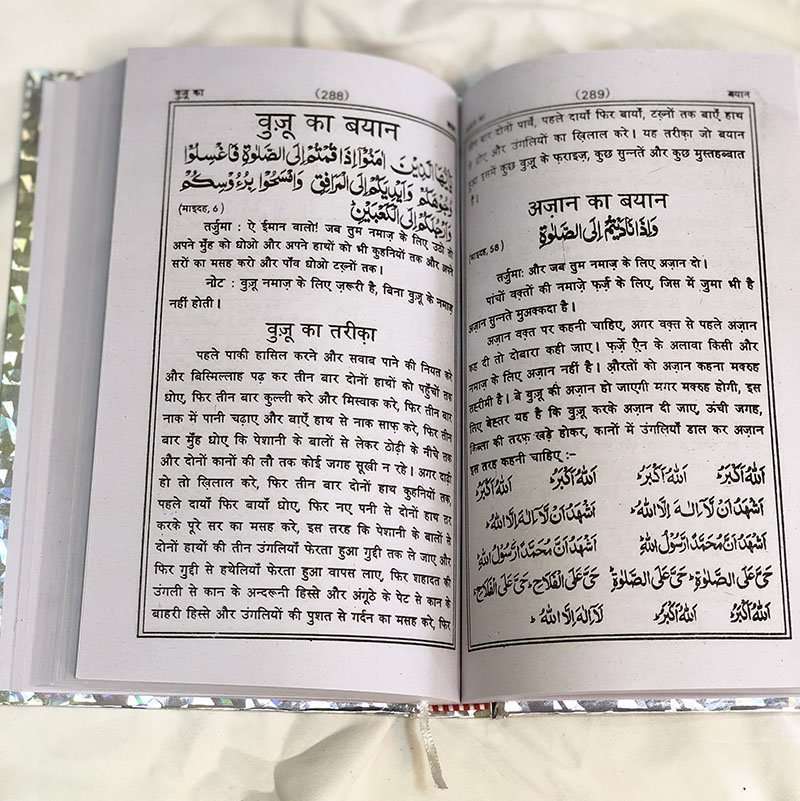 वुज़ू का
(288)
वुज़ू का बयान
الَّذِينَ اٰمَنُوْٓا اِذَا قُمْتُمْ اِلَى الصَّلٰوةِ فَاغْسِلُوْا
وُجُوْهَكُمْ وَاَيْدِيَكُمْ اِلَى الْمَرَافِقِ وَامْسَحُوْا بِرُءُوْسِكُمْ
(माइदह, 6)
وَاَرْجُلَكُمْ اِلَى الْكَعْبَيْنِ
तर्जुमा : ऐ ईमान वालो! जब तुम नमाज़ के लिए उठो तो
अपने मुँह को धोओ और अपने हाथों को भी कुहनियों तक और अपने
सरों का मसह करो और पाँव धोओ टख़्नों तक।
नोट : वुज़ू नमाज़ के लिए ज़रूरी है, बिना वुज़ू के नमाज़
नहीं होती।
वुज़ू का तरीक़ा
पहले पाकी हासिल करने और सवाब पाने की नियत करे
और बिस्मिल्लाह पढ़ कर तीन बार दोनों हाथों को पहुँचों तक
धोए, फिर तीन बार कुल्ली करे और मिस्वाक करे, फिर तीन बार
नाक में पानी चढ़ाए और बाएँ हाथ से नाक साफ़ करे, फिर तीन
बार मुँह धोए कि पेशानी के बालों से लेकर ठोढ़ी के नीचे तक
और दोनों कानों की लौ तक कोई जगह सूखी न रहे। अगर दाढ़ी
हो तो ख़िलाल करे, फिर तीन बार दोनों हाथ कुहनियों तक,
पहले दायाँ फिर बायाँ धोए, फिर नए पनी से दोनों हाथ तर
करके पूरे सर का मसह करे, इस तरह कि पेशानी के बालों से
दोनों हाथों की तीन उंगलियाँ फेरता हुआ गुद्दी तक ले जाए और
फिर गुद्दी से हथेलियाँ फेरता हुआ वापस लाए, फिर शहादत की
उंगली से कान के अन्दरूनी हिस्से और अंगूठे के पेट से कान के
बाहरी हिस्से और उंगलियों की पुशत से गर्दन का मसह करे, फिर
(289)
बयान
बार दोनों पावँ, पहले दायाँ फिर बायाँ, टख़्नों तक बाएँ हाथ
से धोए और उंगलियों का ख़िलाल करे। यह तरीक़ा जो बयान
हुआ इसमें कुछ वुज़ू के फ़राइज़, कुछ सुन्नतें और कुछ मुस्तहब्बात
अज़ान का बयान
وَاِذَا نَادَيْتُمْ اِلَى الصَّلٰوةِ
(माइदह, 58)
तर्जुमा: और जब तुम नमाज़ के लिए अज़ान दो।
पांचों वक़्तों की नमाज़े फ़र्ज़ के लिए, जिस में जुमा भी है
अज़ान सुन्नते मुअक्कदा है।
अज़ान वक़्त पर कहनी चाहिए, अगर वक़्त से पहले अज़ान
कह दी तो दोबारा कही जाए। फर्ज़े ऐन के अलावा किसी और
नमाज़ के लिए अज़ान नहीं है। औरतों को अज़ान कहना मकरुह
तहरीमी है। बे वुज़ू की अज़ान हो जाएगी मगर मकरुह होगी, इस
लिए बेहतर यह है कि वुज़ू करके अज़ान दी जाए, ऊंची जगह,
क़िब्ला की तरफ़ खड़े होकर, कानों में उंगलियाँ डाल कर अज़ान
इस तरह कहनी चाहिए :-
اَللّٰهُ اَكْبَرُ اَللّٰهُ اَكْبَرُ اَللّٰهُ اَكْبَرُ اَللّٰهُ اَكْبَرُ
اَشْهَدُ اَنْ لَّآ اِلٰهَ اِلَّا اللّٰهُ اَشْهَدُ اَنْ لَّآ اِلٰهَ اِلَّا اللّٰهُ
اَشْهَدُ اَنَّ مُحَمَّدًا رَّسُوْلُ اللّٰهِ اَشْهَدُ اَنَّ مُحَمَّدًا رَّسُوْلُ اللّٰهِ
حَيَّ عَلَى الصَّلٰوةِ حَيَّ عَلَى الصَّلٰوةِ حَيَّ عَلَى الْفَلَاحِ حَيَّ عَلَى الْفَلَاحِ
اَللّٰهُ اَكْبَرُ اَللّٰهُ اَكْبَرُ لَآ اِلٰهَ اِلَّا اللّٰهُ